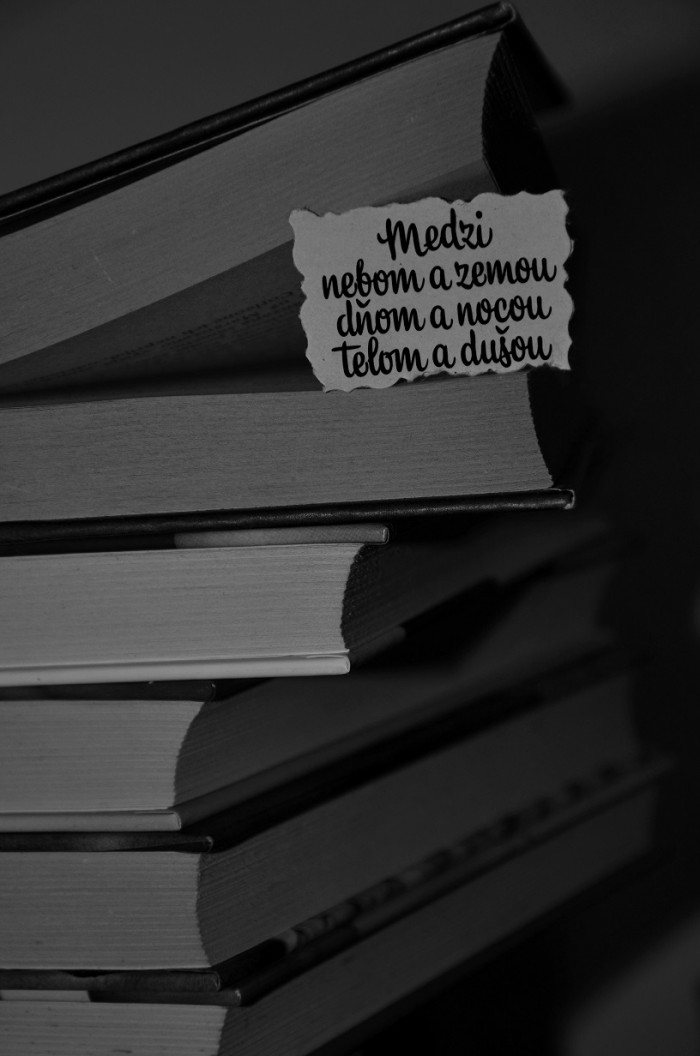 Medzi
nebom a zemou
dňom a nocou
telom a dušou